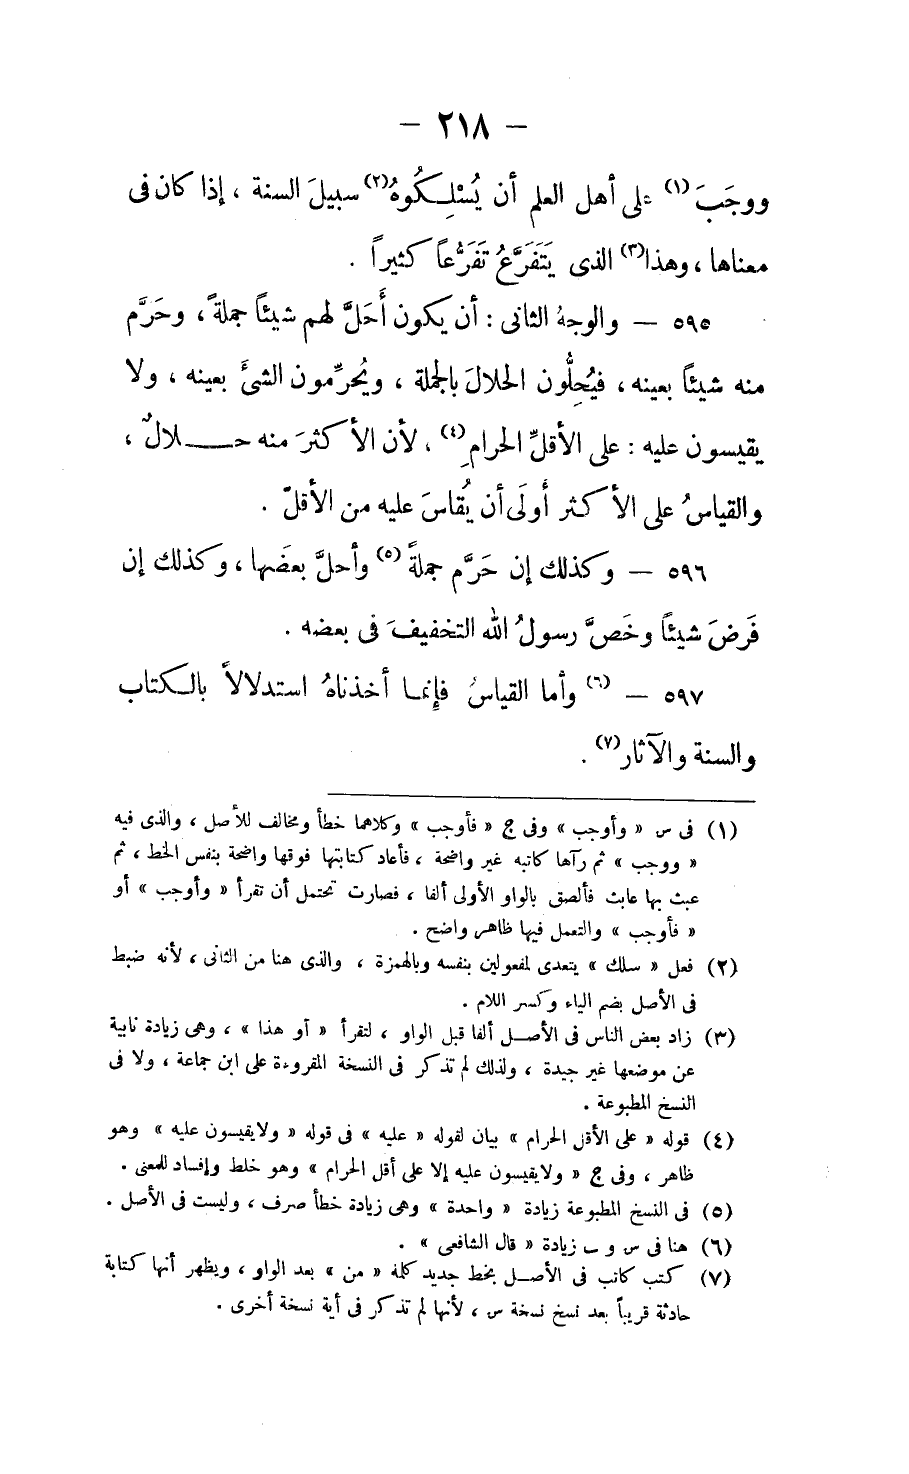 — ٢١٨ —
ووجَبَ (١) على أهل العلم أن يُسْلِكُوهُ (٢) سبيلَ السنة ، إذا كان فى
معناها ، وهذا (٣) الذى يَتَفَرَّعُ تَفَرُّعاً كثيراً .
٥٩٥ — والوجهُ الثانى : أن يكون أَحَلَّ لهم شيئاً جملةً ، وحَرَّم
منه شيئاً بعينه ، فيُحِلُّون الحلالَ بالجملة ، ويُحرِّمون الشئَ بعينه ، ولا
يقيسون عليه : على الأقلِّ الحرامِ (٤) ، لأن الأكثرَ منه حـلالٌ ،
والقياسُ على الأكثر أَولَى أن يُقاسَ عليه من الأقلّ .
٥٩٦ — وكذلك إن حَرَّم جملةً (٥) وأحلَّ بعضَها ، وكذلك إن
فَرَضَ شيئاً وخَصَّ رسولُ الله التخفيفَ فى بعضه .
٥٩٧ — (٦) وأما القياسُ فإنما أخذناهُ استدلالاً بالكتاب
والسنة والآثار (٧) .
(١) فى س « وأوجب » وفى ج « فأوجب » وكلاهما خطأ ومخالف للأصل ، والذى فيه
« ووجب » ثم رآها كاتبه غير واضحة ، فأعاد كتابتها فوقها واضحة بنفس الخط ، ثم
عبث بها عابث فألصق بالواو الأولى ألفا ، فصارت تحتمل أن تقرأ « وأوجب » أو
« فأوجب » والتعمل فيها ظاهر واضح .
(٢) فعل « سلك » يتعدى لمفعولين بنفسه وبالهمزة ، والذى هنا من الثانى ، لأنه ضبط
فى الأصل بضم الياء وكسر اللام .
(٣) زاد بعض الناس فى الأصـل ألفا قبل الواو ، لتقرأ « أو هذا » ، وهى زيادة نابية
عن موضعها غير جيدة ، ولذلك لم تذكر فى النسخة المقروءة على ابن جماعة ، ولا فى
النسخ المطبوعة .
(٤) قوله « على الأقل الحرام » بيان لقوله « عليه » فى قوله « ولايقيسون عليه » وهو
ظاهر ، وفى ج « ولايقيسون عليه إلا على أقل الحرام » وهو خلط وإفساد للمعنى .
(٥) فى النسخ المطبوعة زيادة « واحدة » وهى زيادة خطأ صرف ، وليست فى الأصل .
(٦) هنا فى س و ب زيادة « قال الشافعى » .
(٧) كتب كاتب فى الأصـل بخط جديد كلمة « من » بعد الواو ، ويظهر أنها كتابة
حادثة قريباً بعد نسخ نسخة س ، لأنها لم تذكر فى أية نسخة أخرى .